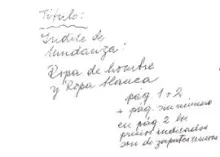 Título:
Indice de
lundanza:
Ropa de hombre
y Ropa blanca
pág 1 o 2
+ pág sin número
en pág 2 los
precios indicados
son de zapatos